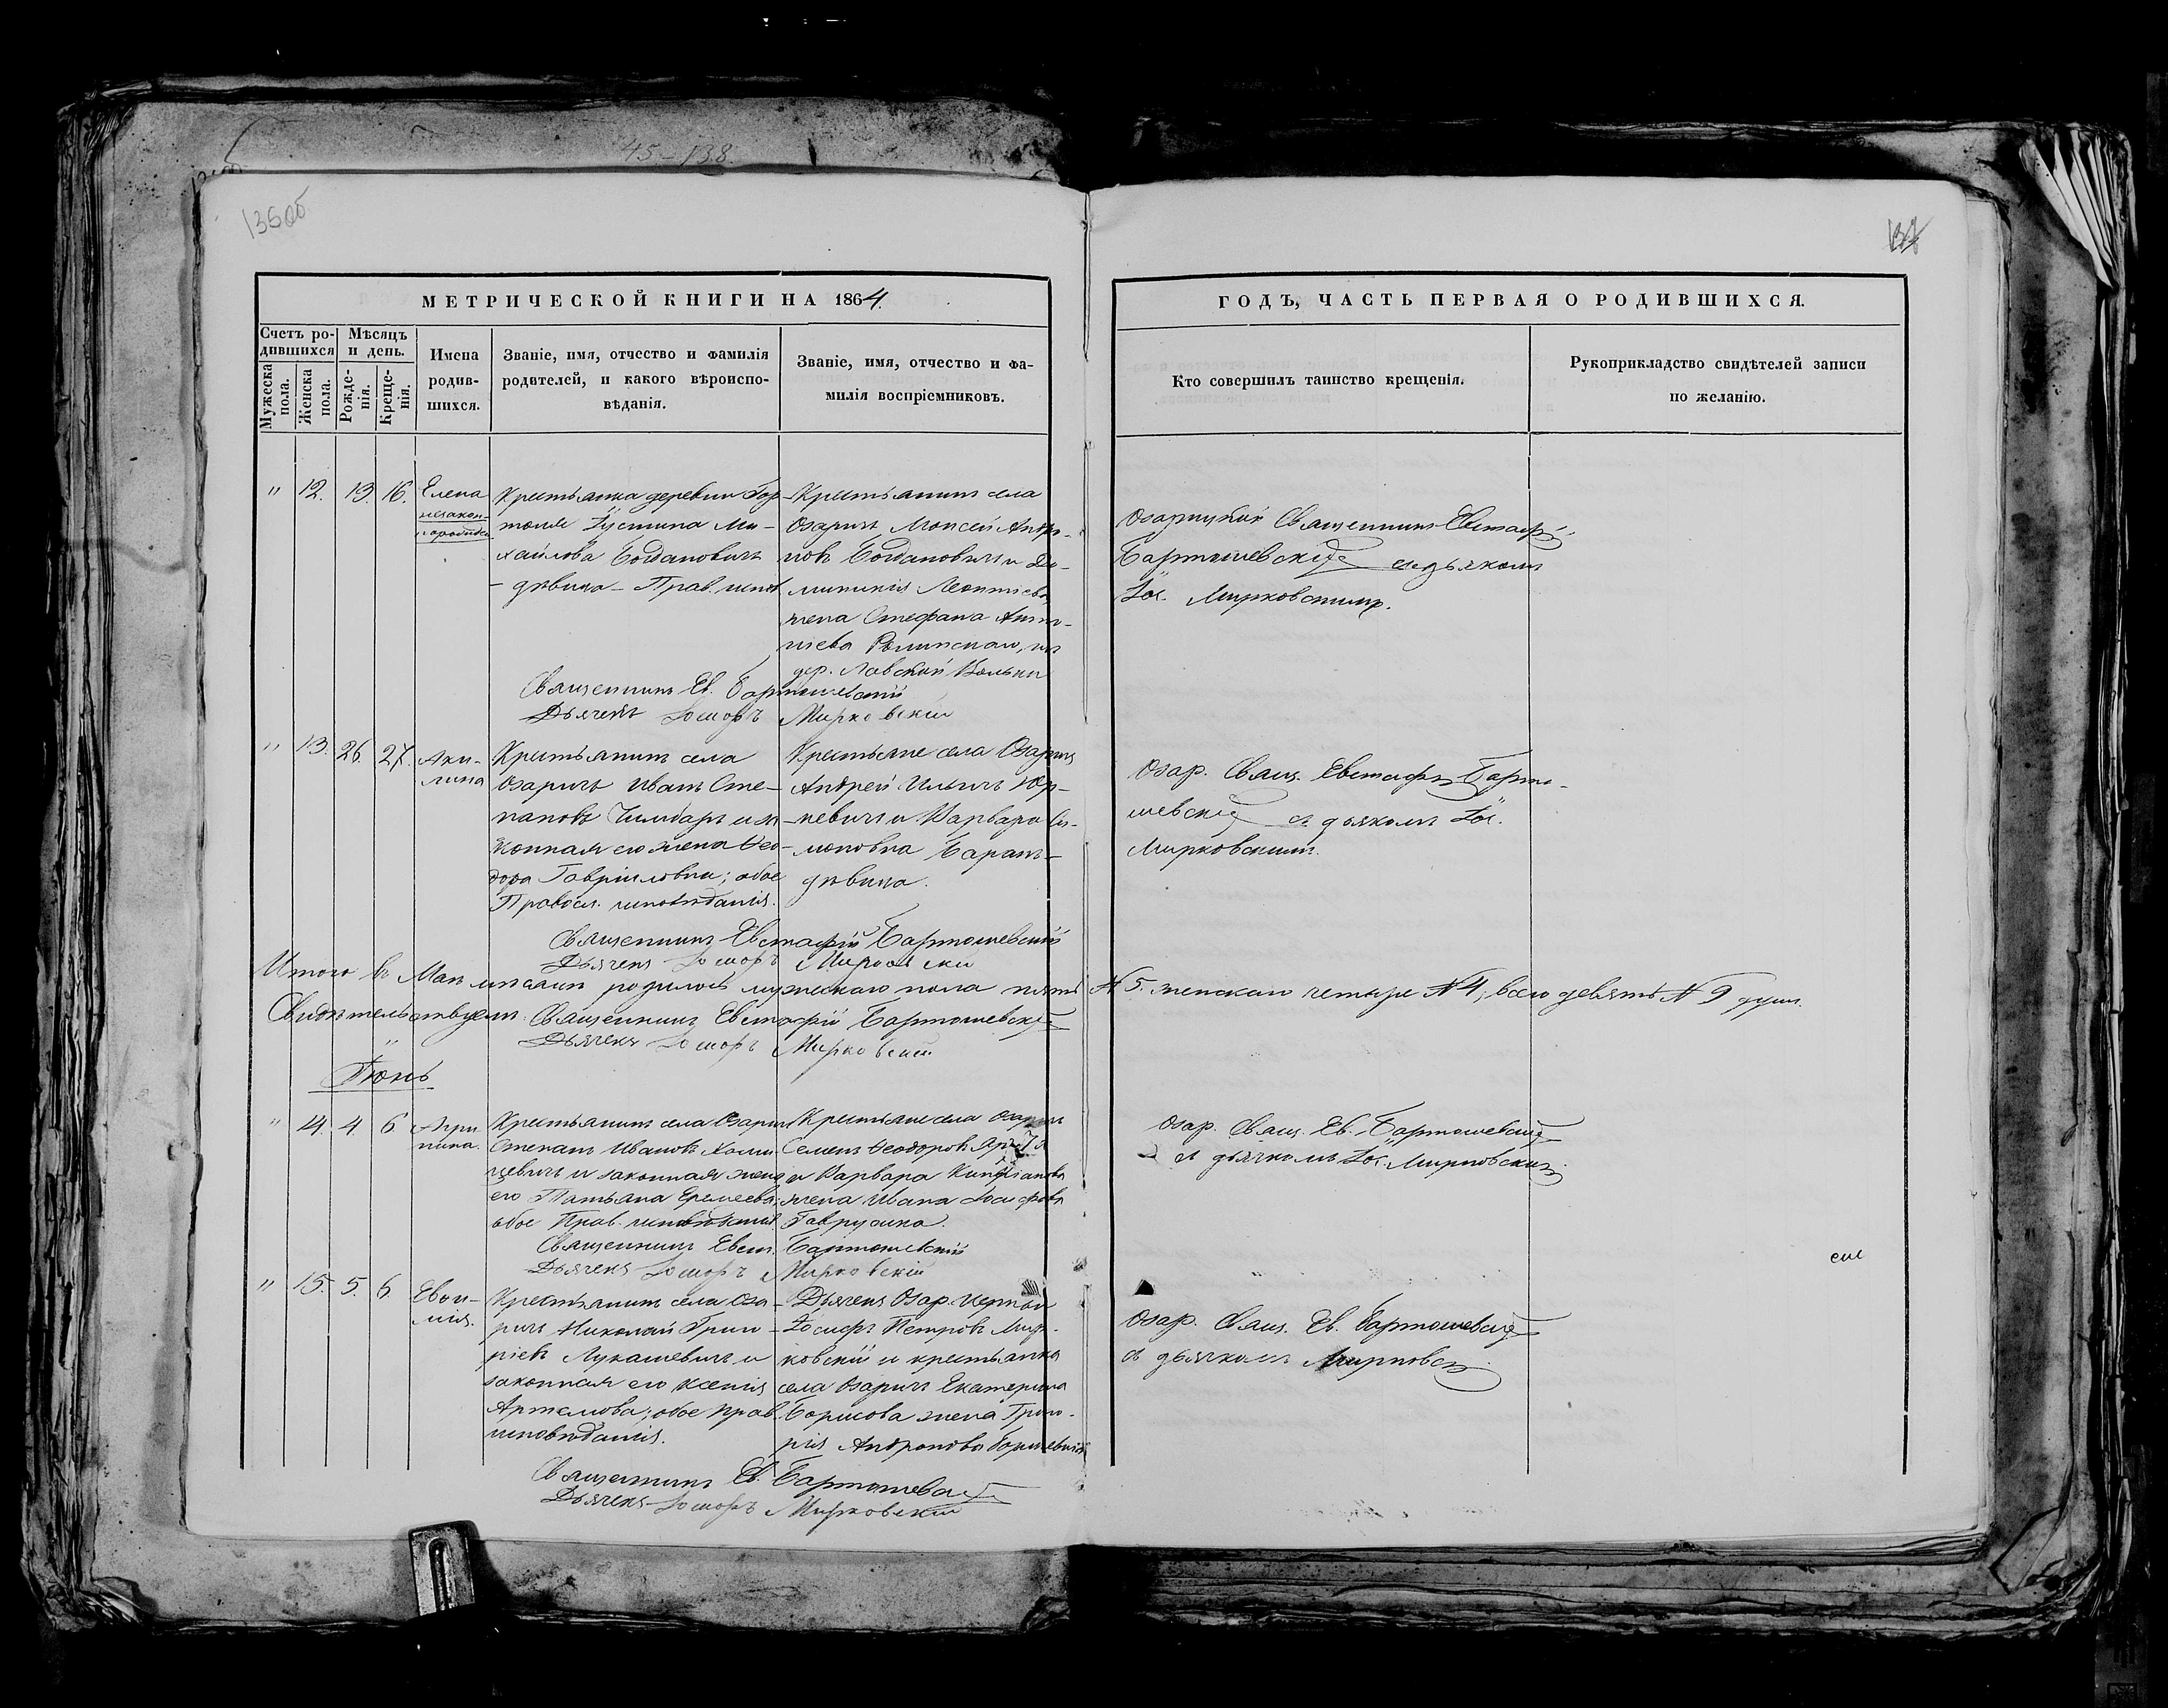 45-138.
136об
137
МЕТРИЧЕСКОЙ КНИГИ НА 1864.
Счетъ родившихся
Мѣсяцъ и день.
Мужеска пола.
Женска пола.
Рожденія.
Крещенія.
Имена родившихся.
Званіе, имя, отчество и фамилія родителей, и какого вѣроисповѣданія.
Званіе, имя, отчество и фамилія воспріемниковъ.
ГОДЪ, ЧАСТЬ ПЕРВАЯ О РОДИВШИХСЯ.
Кто совершилъ таинство крещенія.
Рукоприкладство свидѣтелей записи по желанію.
" 12. 13. 16.
Елена
незакон-
норожден
Крестьянка деревни
Іустина Ми-
хайлова Богдановичъ
- дѣвица - Прав. испов
Крестьянинъ села
Озаричъ Моисей Андро-
новъ Богдановичъ и До-
миникія Леонтіева,
жена Стефана Анто-
ніева изъ
дер. Вольки
Озарицкій Священникъ Евстафій
Бартошевскій съ дьякомъ
Іос. Мирковскимъ.
Священникъ Ев. Бартошевскій
Дьячекъ Іосифъ Мирковскій
" 13. 26. 27.
Аки-
лина
Крестьянинъ села
Озаричъ Иванъ Сте-
пановъ и за-
конная его жена Ѳео-
дора Гавриловна; обое
Правосл. исповѣданія.
Крестьяне села Озаричъ
Андрей Ильичъ Юр-
кевичъ и Варвара Си-
моновна Баранъ-
дѣвица.
Озар. Свящ. Евстафій Барто-
шевскій съ дьякомъ Іос.
Мирковскимъ.
Священникъ Евстафій Бартошевскій
Дьячекъ Іосифъ Мирковскій
Итого въ Маѣ мѣсяцѣ родилось мужескаго пола пять N 5. женскаго четыре N 4, всего девять N 9 душъ.
Свидѣтельствуемъ: Священникъ Евстафій Бартошевскій
Дьячекъ Іосифъ Мирковскій
Іюнь
" 14. 4. 6
Агри
пина.
Крестьянинъ села Озаричъ
Степанъ Ивановъ Хоми-
цевичъ и законная жена
его Татьяна Еремеева,
обое Прав. исповѣданія.
Крестьяне села Озаричъ
Семенъ Ѳеодоровъ
и Варвара Кипріанова
жена Ивана Іосифова
Гаврусика.
Озар. Свящ. Ев. Бартошевскій
съ дьячкомъ Іос. Мирковскимъ.
Священникъ Евст. Бартошевскій
Дьячекъ Іосифъ Мирковскій
" 15. 5. 6.
Евѳи-
мія.
Крестьянинъ села Оза-
ричъ Николай Григо-
ріевъ Лукашевичъ и
законная его Ксенія
Артемова; обое прав.
исповѣданія.
Дьячекъ Озар. Церкви
Іосифъ Петровъ Мир-
ковскій и крестьянка
села Озаричъ Екатерина
Борисова жена Григо-
рія Андронова
Озар. Свящ. Ев. Бартошевскій
съ дьячкомъ Мирковск.
Священникъ Ев. Бартошевскій
Дьячекъ Іосифъ Мирковскій